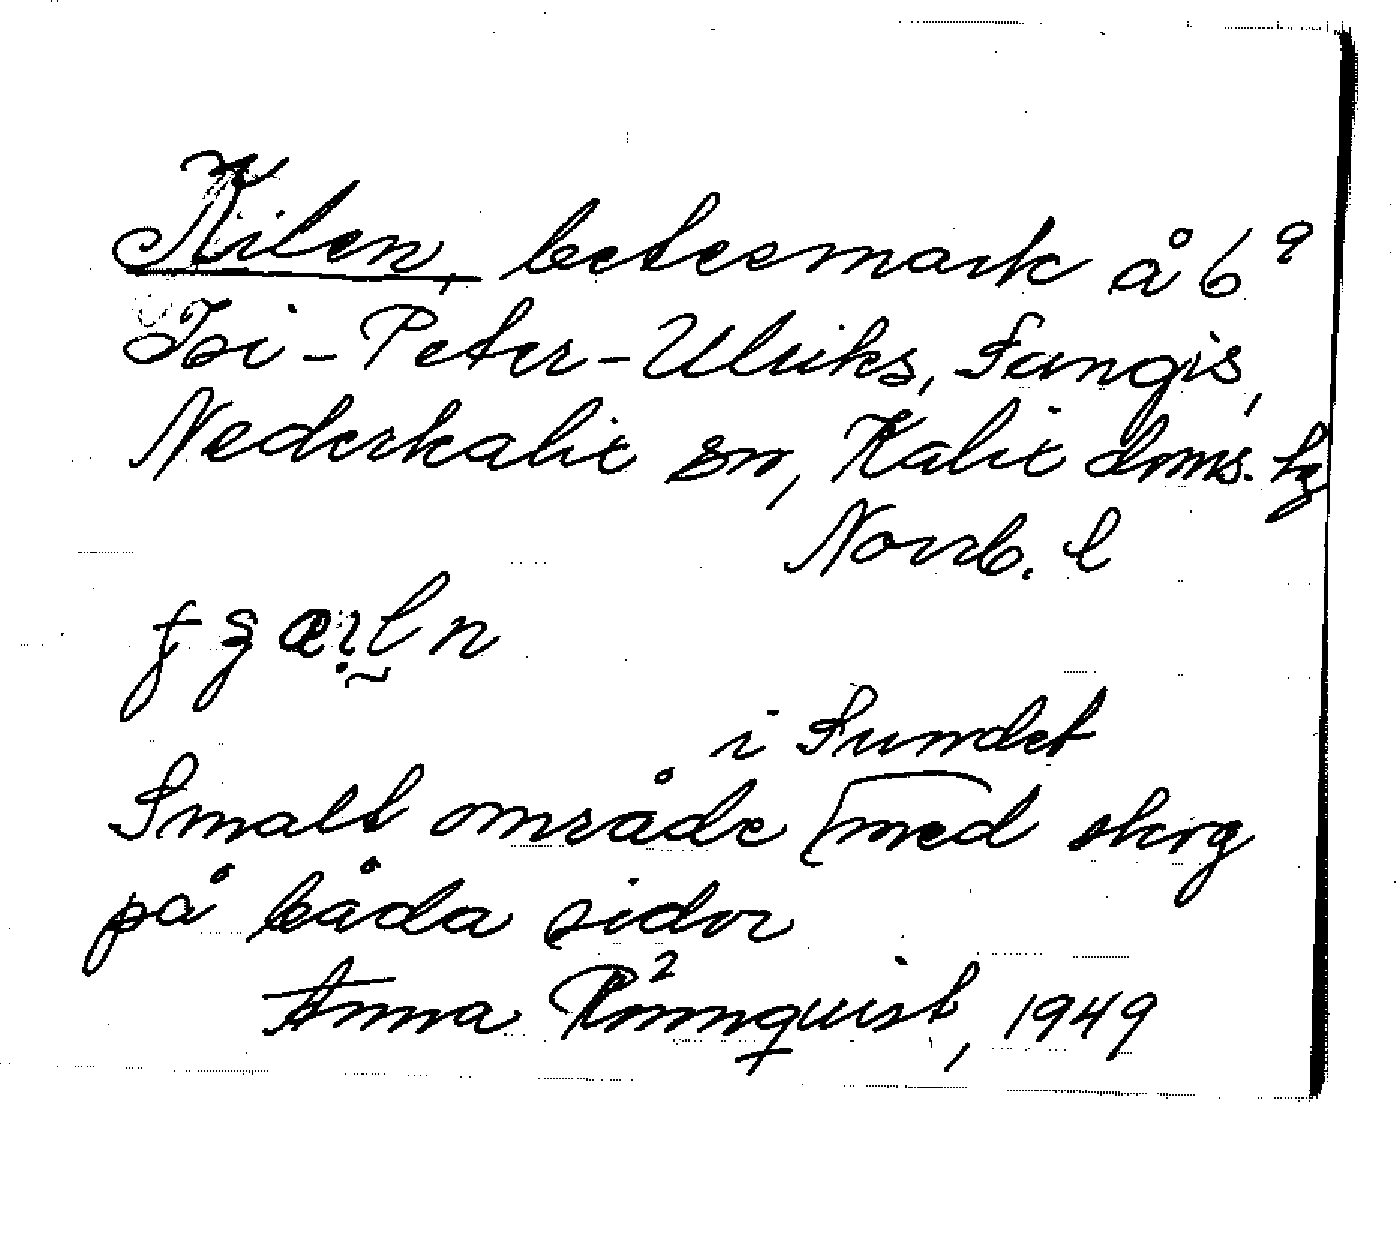 Kilen, betesmark å 6⁹
Isi-Peter-Ulriks, Sangis,
Nederkalix sn, Kalix doms. hg
Norrb. l
i Sundet
Smalt område med skog
på båda sidor
Anna Rönnquist, 1949